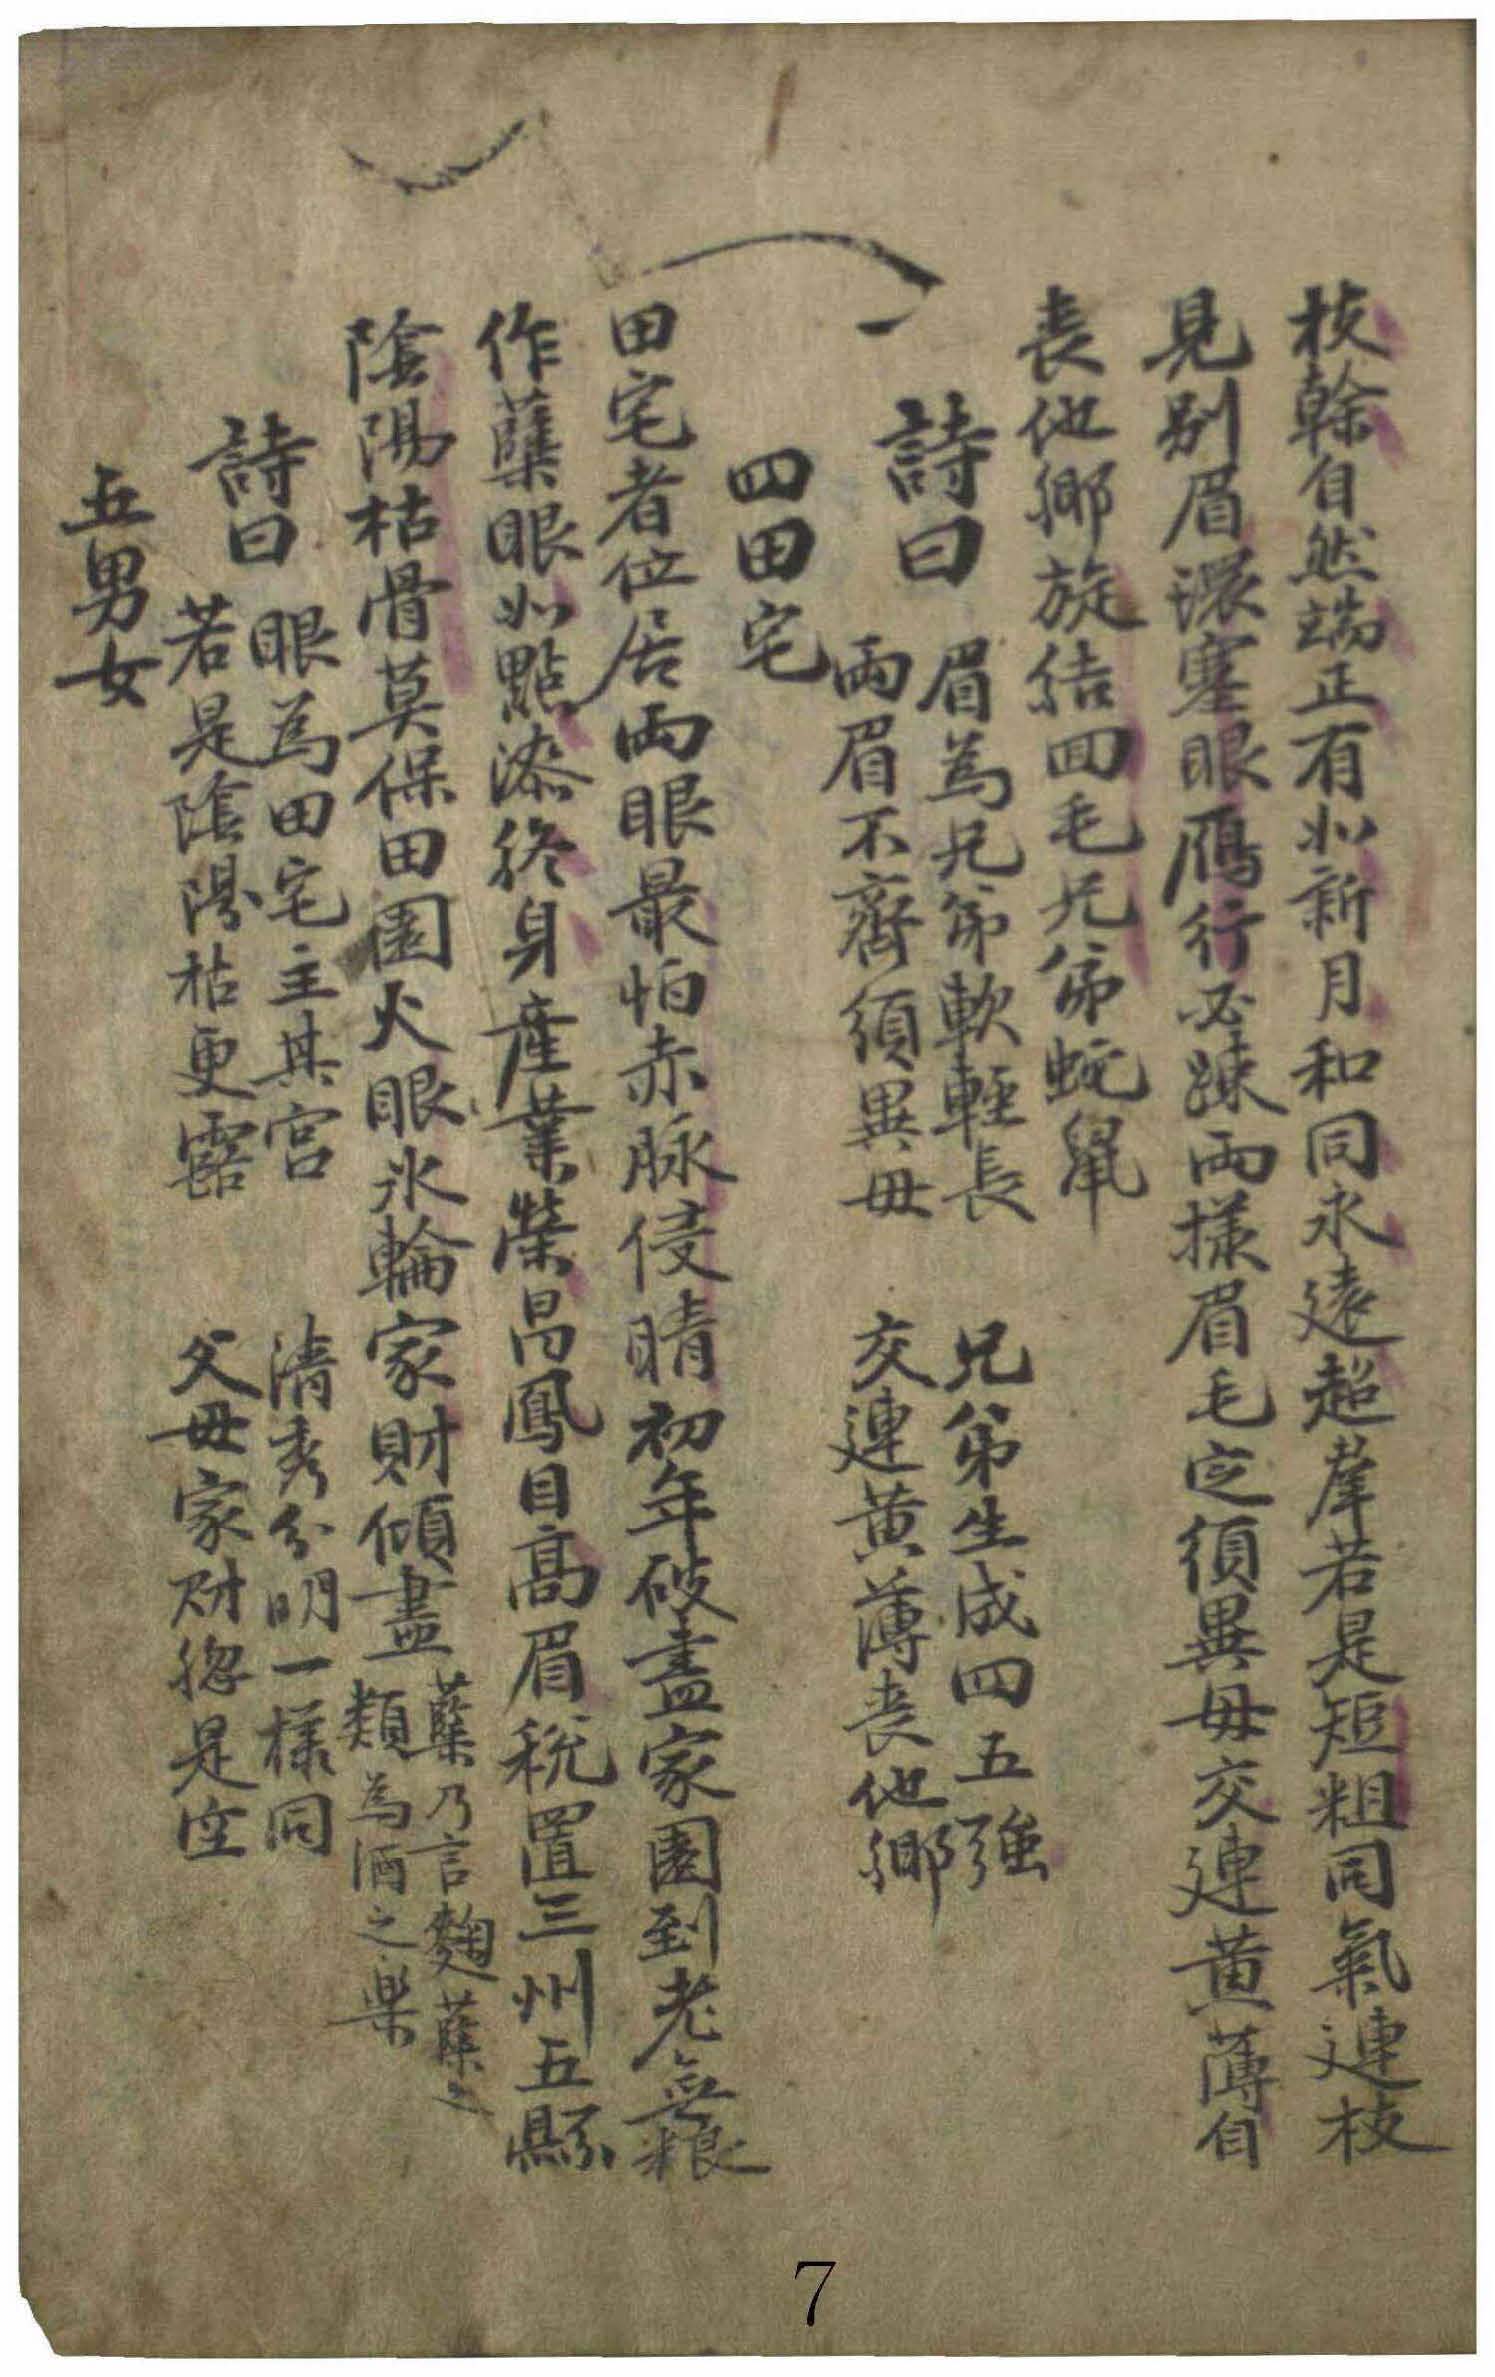 枝幹自然端正有如新月和同永遠超羣若是短粗同氣連枝
見别眉濃塞眼鴈行必踈兩様眉毛定須異毋交連黄薄自
丧他鄉旋結回毛兄弟蛇鼠
詩曰
眉為兄弟軟輕長 兄弟生成四五強
兩眉不齊須異毋 交連黄薄丧他鄉
四田宅
田宅者位居兩眼最怕赤脉侵睛初年破盡家園到老無粮
作蘖眼如點漆終身産業榮昌鳳目高眉税置三州五縣
陰陽枯骨莫保田園火眼氷輪家財傾盡
蘖乃言麹蘖之
類為酒之藥
詩曰
眼為田宅主其宮 清秀分明一様同
若是陰陽枯更露 父毋家財惣是空
五男女
7